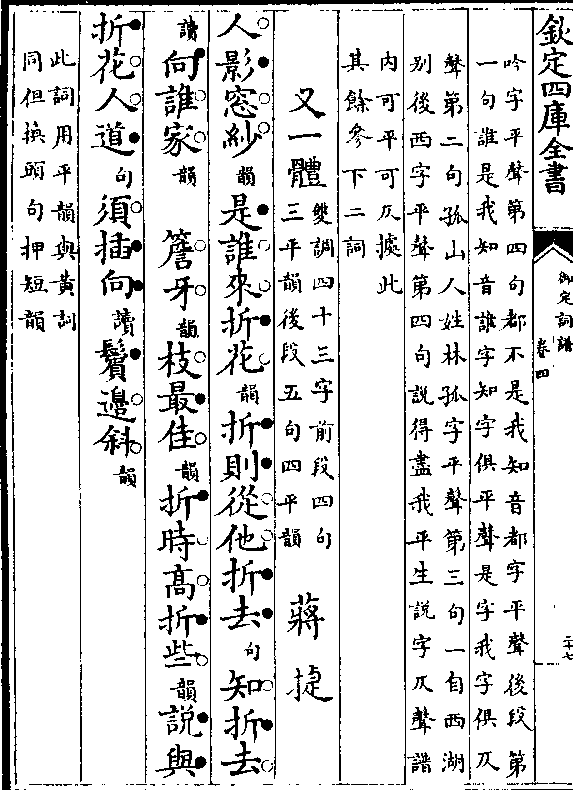 欽定四庫全書
御定詞譜
卷四
二十七
吟字平聲第四句都不是我知音都字平聲後段第
一句誰是我知音誰字知字俱平聲是字我字俱仄
聲第二句孤山人姓林孤字平聲第三句一自西湖
别後西字平聲第四句說得盡我平生說字仄聲譜
内可平可仄據此
其餘參下二詞
又一體
雙調四十三字前段四句
三平韻後段五句四平韻
蔣捷
人影窓紗韻是誰來折花韻折則從他折去句知折去
讀向誰家韻 簷牙韻枝最佳韻折時高折些韻說與
折花人道句須插向讀鬢邊斜韻
此詞用平韻與黄詞
同但換頭句押短韻